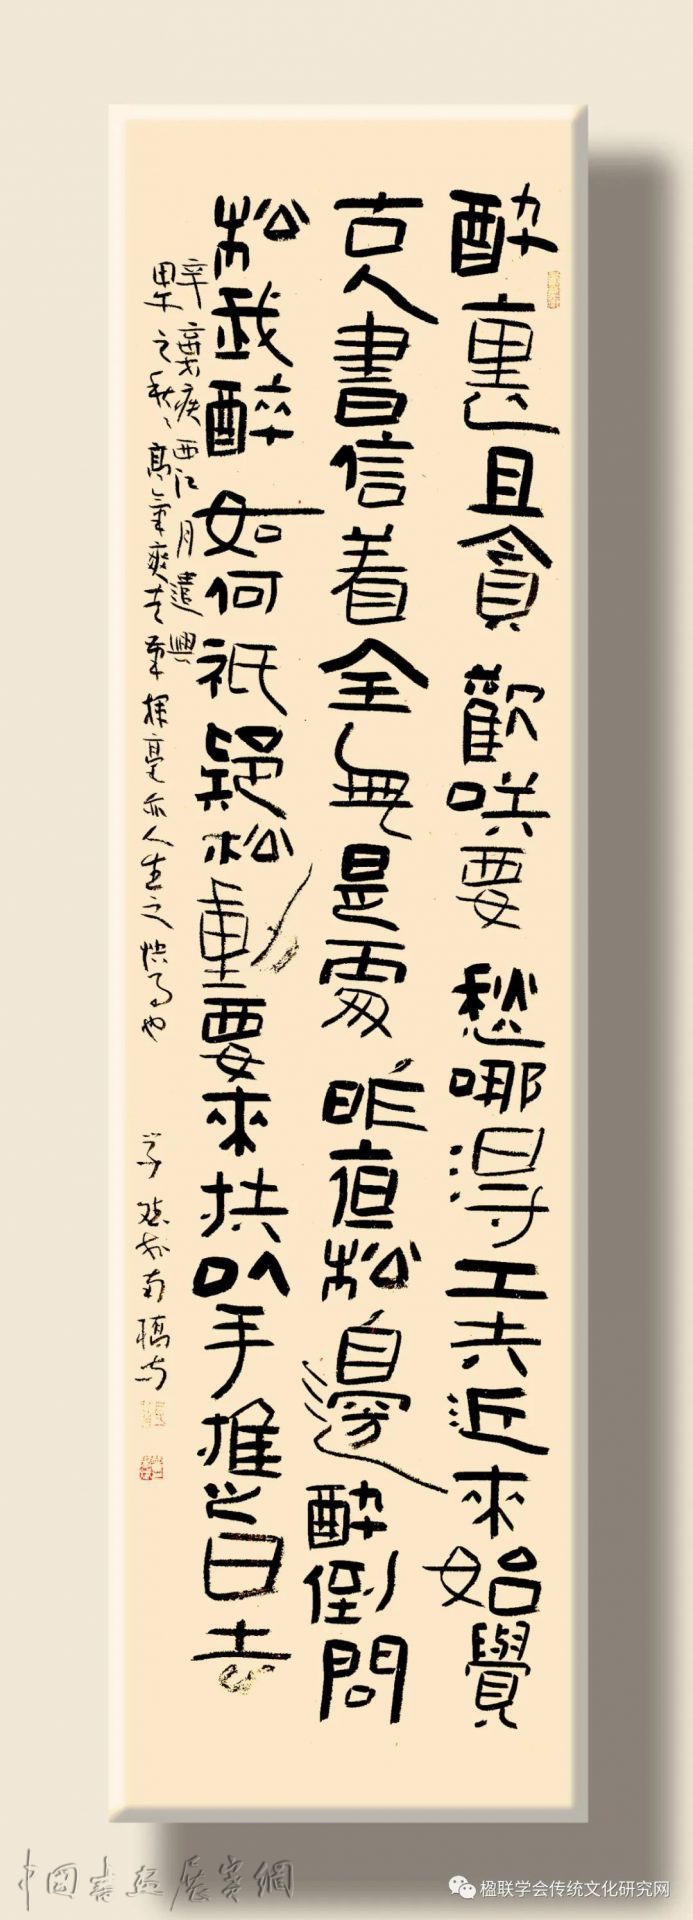 酔裏且貪歡咲要愁哪得工夫近來始覺
古人書信着全無是處昨夜松邊酔倒問
松我醉如何祇疑松動要來扶以手推之曰去
辛棄疾西江月遣興
之秋〻高氣爽走筆揮毫亦人生之快事也
中國書畫展賽網
楹联学会传统文化研究网